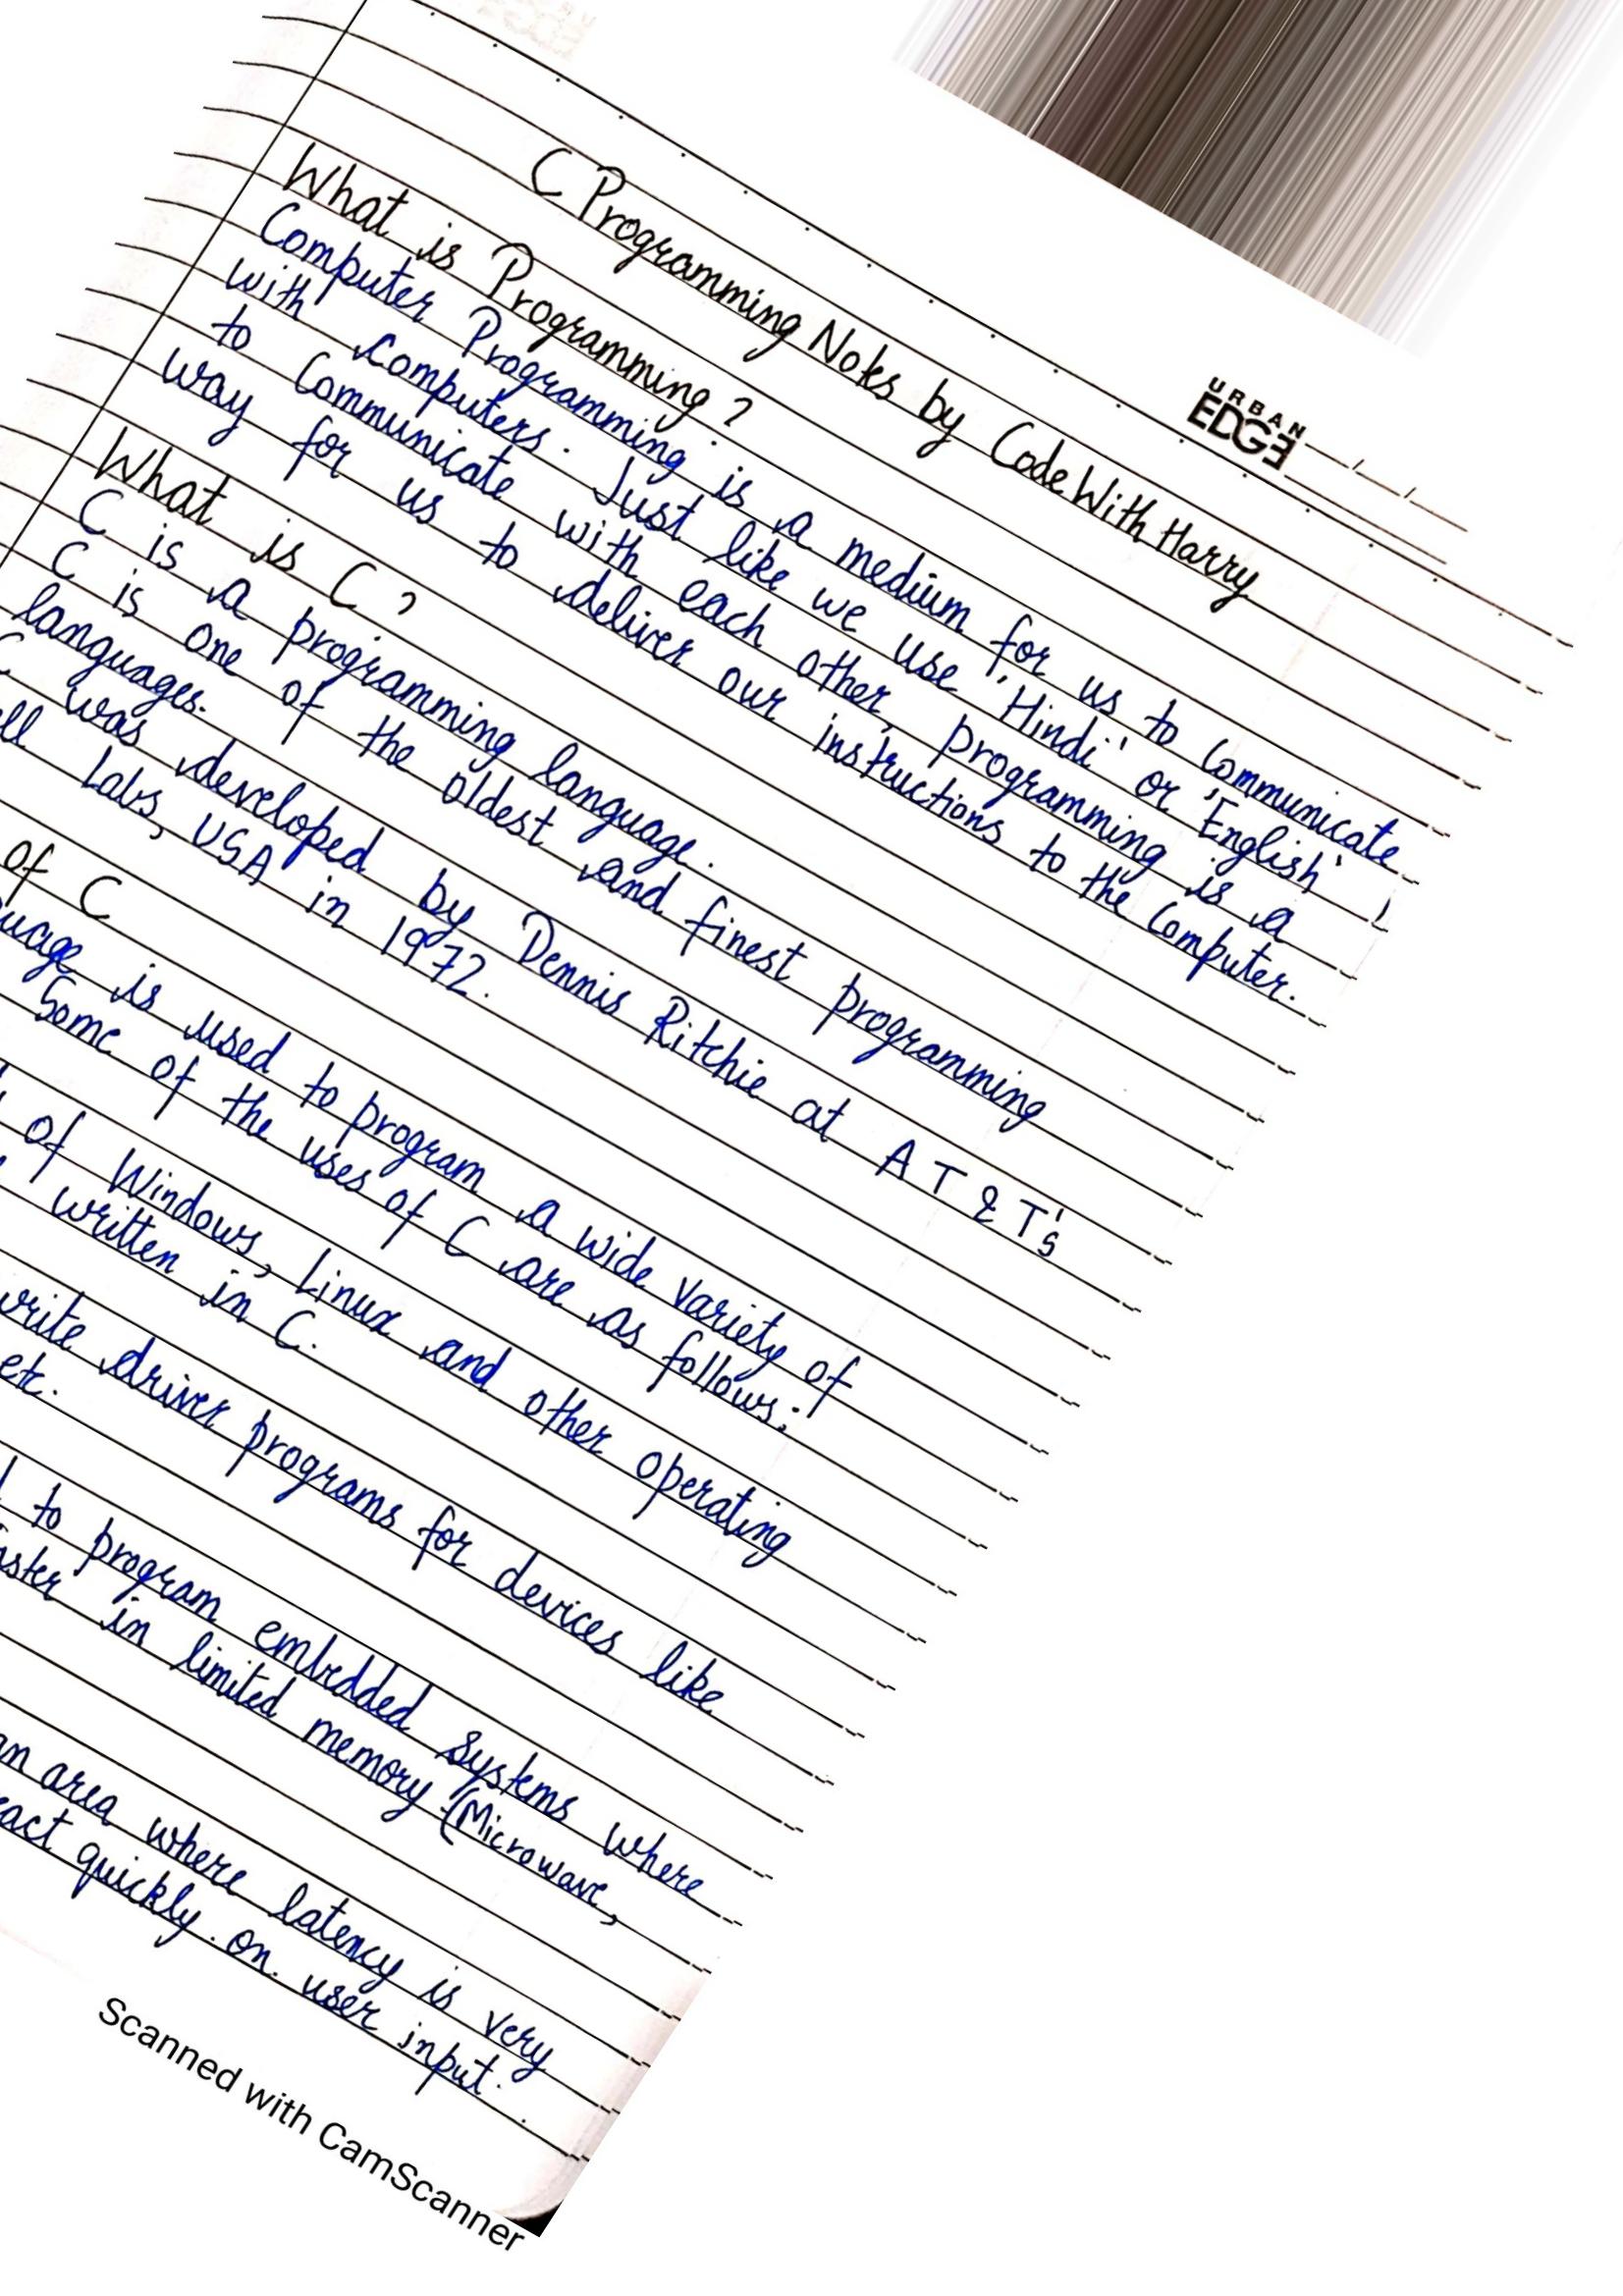 URBAN
EDGE
C Programming Notes by CodeWithHarry
What is Programming?
Computer Programming is a medium for us to Communicate
with Computers. Just like we use 'Hindi' or 'English'
to Communicate with each other, programming is a
way for us to deliver our instructions to the Computer.
What is C?
C is a programming language.
C is one of the oldest and finest programming
languages.
C was developed by Dennis Ritchie at AT&T's
ll Labs, USA in 1972.
of C
uage is used to program a wide variety of
Some of the uses of C are as follows:
of Windows, Linux and other operating
written in C.
write driver programs for devices like
etc.
to program embedded systems where
ster in limited memory (Microwave,
an area where latency is very
act quickly on user input.
Scanned with CamScanner